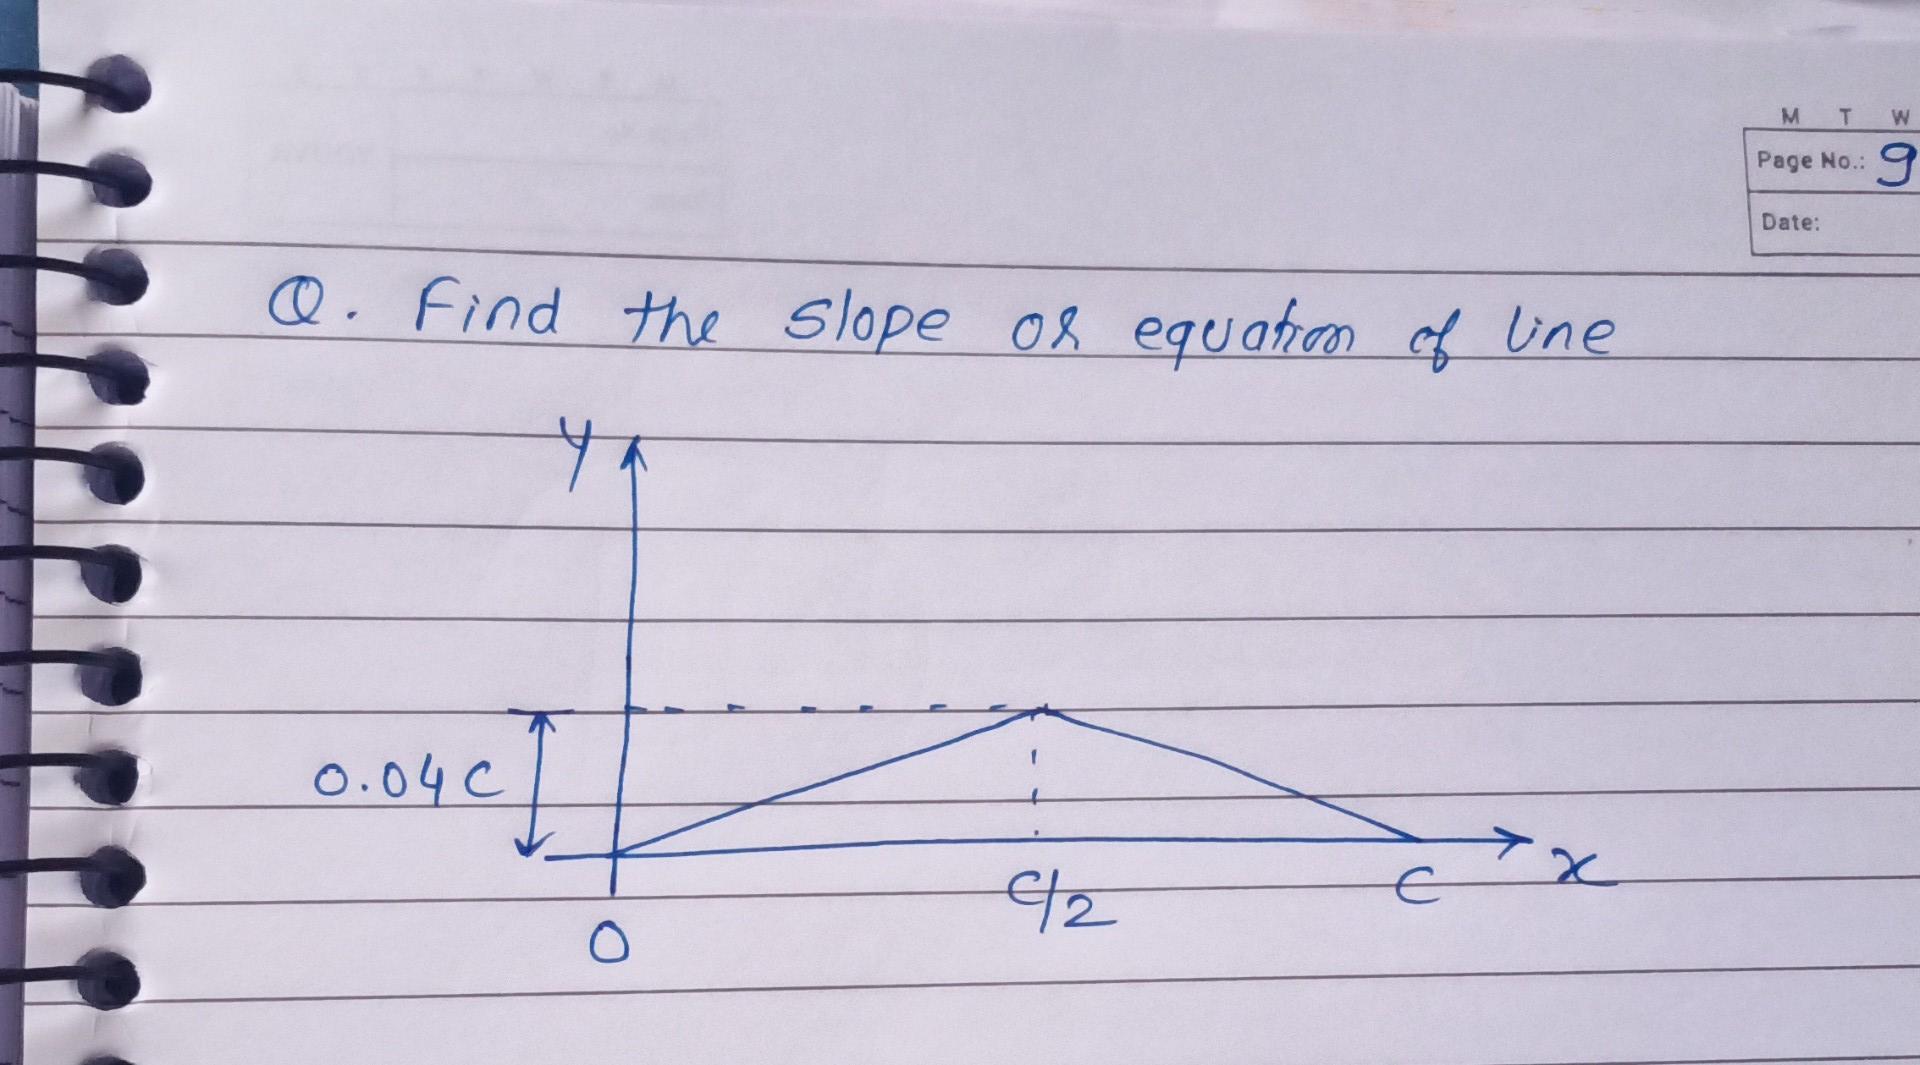 M T W
Page No.: 9
Date:
Q. Find the slope or equation of line
y
0.04C
x
C/2
C
0